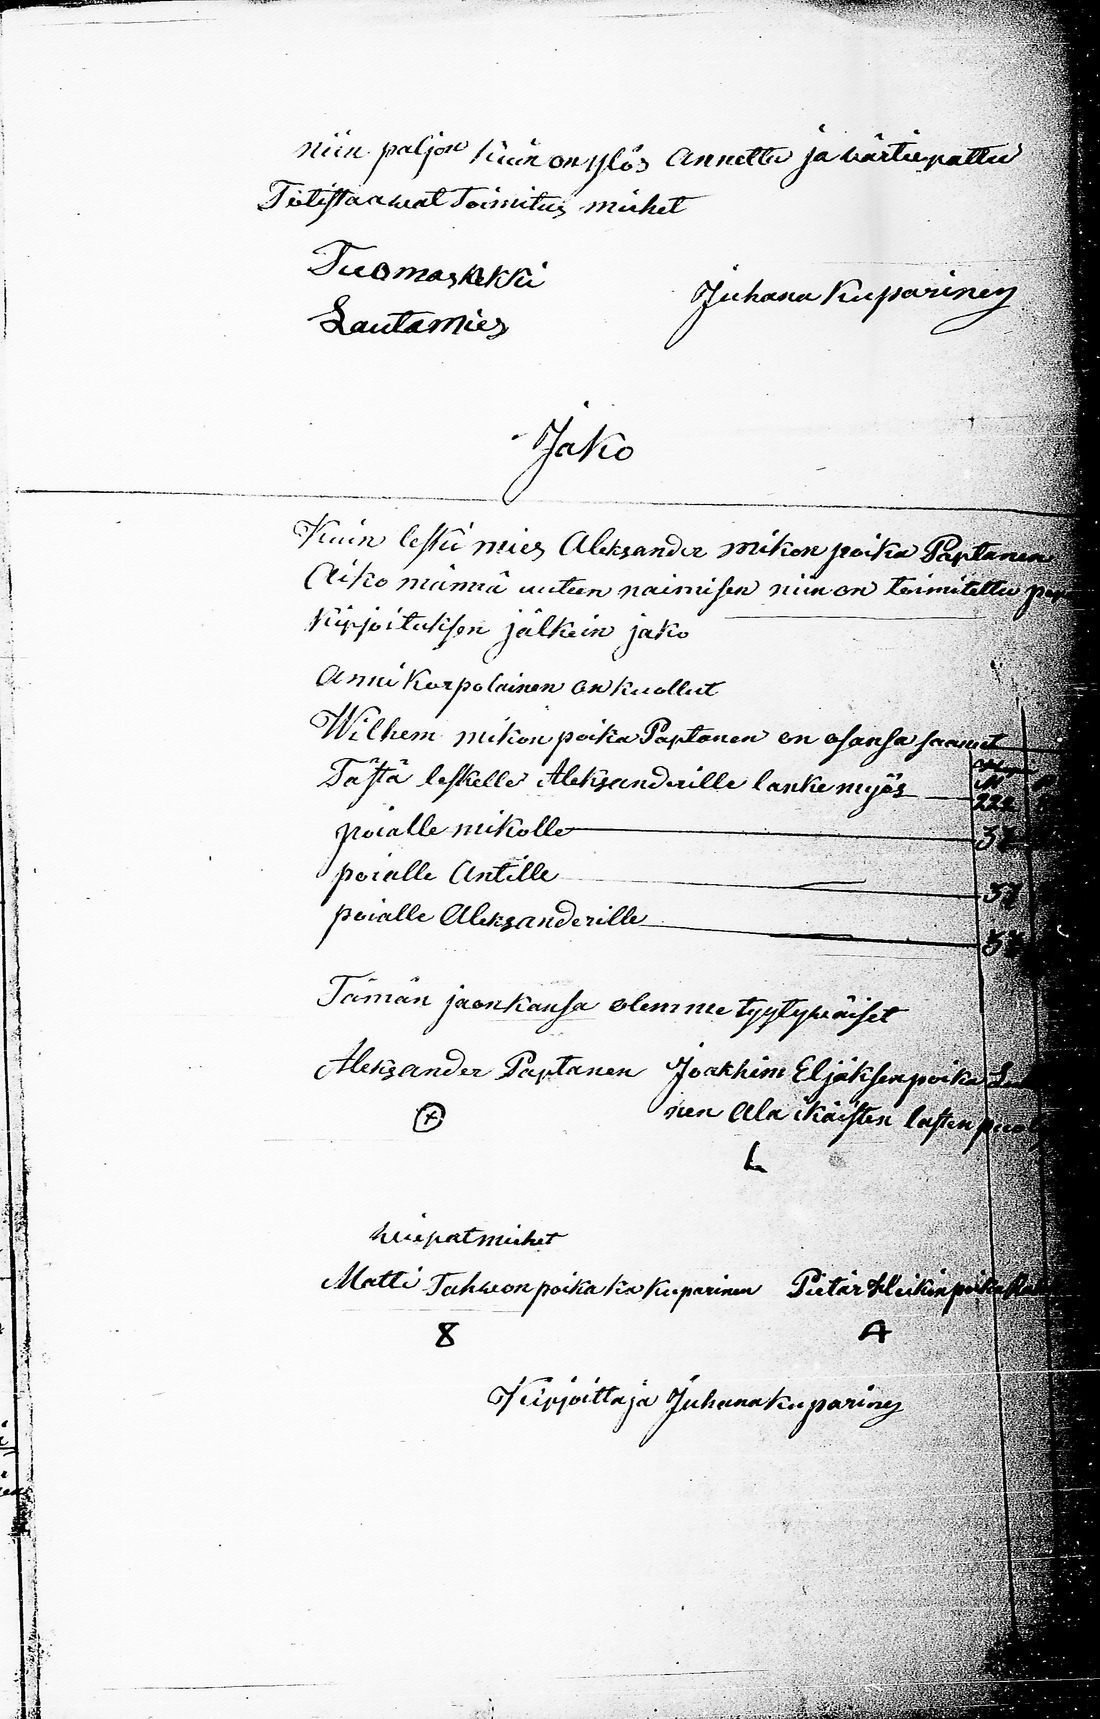 niin paljon kuin on ylös Annettu ja värtierattu
Totistaawat Toimitus miehet
Tuomas Ukki
Juhana Kuparinen
Lautamies
Jako
Kuin leski mies Aleksander mikon poika Paptanen
Aiko männä uuteen naimisen niin on toimitettu
Kirjoituksen jälkein jako
Anni Korpolainen on kuollut
Wilhem mikon poika Paptanen on osansa saanut
Tästä leskelle Aleksanderille lanke myös 222
poialle mikolle 37
poialle Antille 37
poialle Aleksanderille 37
Tämän jaon kansa olemme tyytyväiset
Aleksander Paptanen Joakhim Eljaksen poika
nen Ala ikäisten lasten
L
kuipat miehet
Matti Tahwon poika Kuparinen Pietar Heikin poika
8 A
Kirjoittaja Juhana Kuparinen